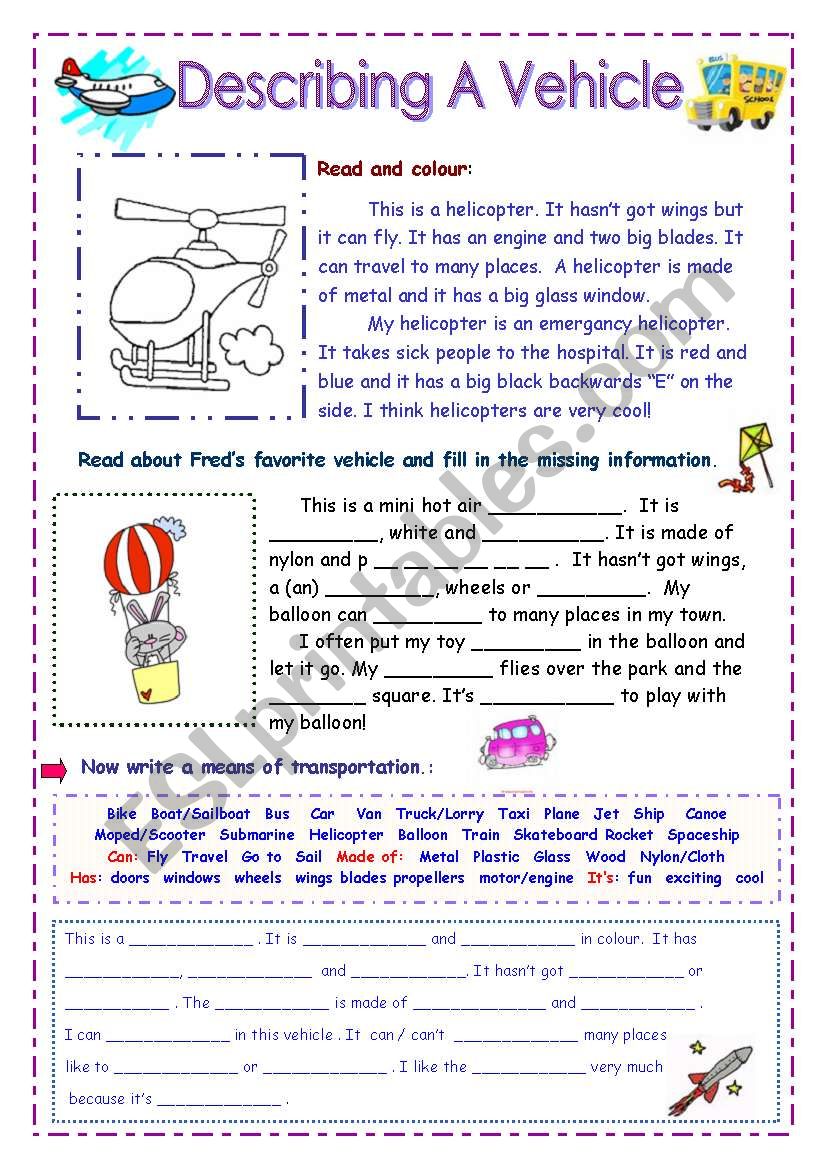 Describing A Vehicle
BUS
SCHOOL
Read and colour:
This is a helicopter. It hasn't got wings but
it can fly. It has an engine and two big blades. It
can travel to many places. A helicopter is made
of metal and it has a big glass window.
My helicopter is an emergancy helicopter.
It takes sick people to the hospital. It is red and
blue and it has a big black backwards “E” on the
side. I think helicopters are very cool!
Read about Fred's favorite vehicle and fill in the missing information.
This is a mini hot air ___________. It is
_________, white and __________. It is made of
nylon and p __ __ __ __ __ __ . It hasn't got wings,
a (an) _________, wheels or _________. My
balloon can _________ to many places in my town.
I often put my toy _________ in the balloon and
let it go. My _________ flies over the park and the
________ square. It's ___________ to play with
my balloon!
Now write a means of transportation.:
Bike Boat/Sailboat Bus Car Van Truck/Lorry Taxi Plane Jet Ship Canoe
Moped/Scooter Submarine Helicopter Balloon Train Skateboard Rocket Spaceship
Can: Fly Travel Go to Sail Made of: Metal Plastic Glass Wood Nylon/Cloth
Has: doors windows wheels wings blades propellers motor/engine It's: fun exciting cool
This is a _____________ . It is _____________ and ____________ in colour. It has
____________, _____________ and ____________. It hasn't got ____________ or
___________ . The ____________ is made of ______________ and ____________ .
I can _____________ in this vehicle . It can / can't _____________ many places
like to _____________ or _____________ . I like the ____________ very much
because it's _____________ .
ESLprintables.com